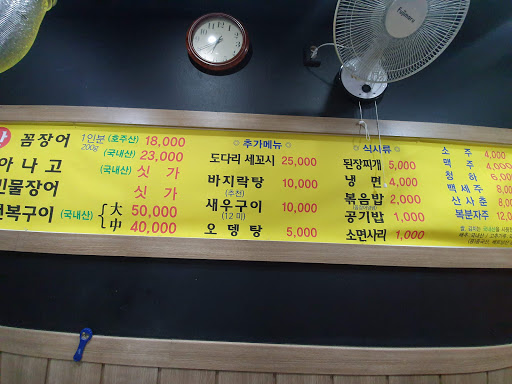 꼼장어 1인분 200g (호주산) 18,000
(국내산) 23,000
아나고 (국내산) 싯가
민물장어 싯가
전복구이 (국내산) { 大 50,000
中 40,000
◦ 추가메뉴 ◦
도다리 세꼬시 25,000
바지락탕 10,000
(추천)
새우구이 10,000
(12 미)
오뎅탕 5,000
◦ 식사류 ◦
된장찌개 5,000
냉면 4,000
볶음밥 2,000
공기밥 1,000
소면사리 1,000
소주 4,000
맥주 4,000
청하
백세주
산사춘
복분자주